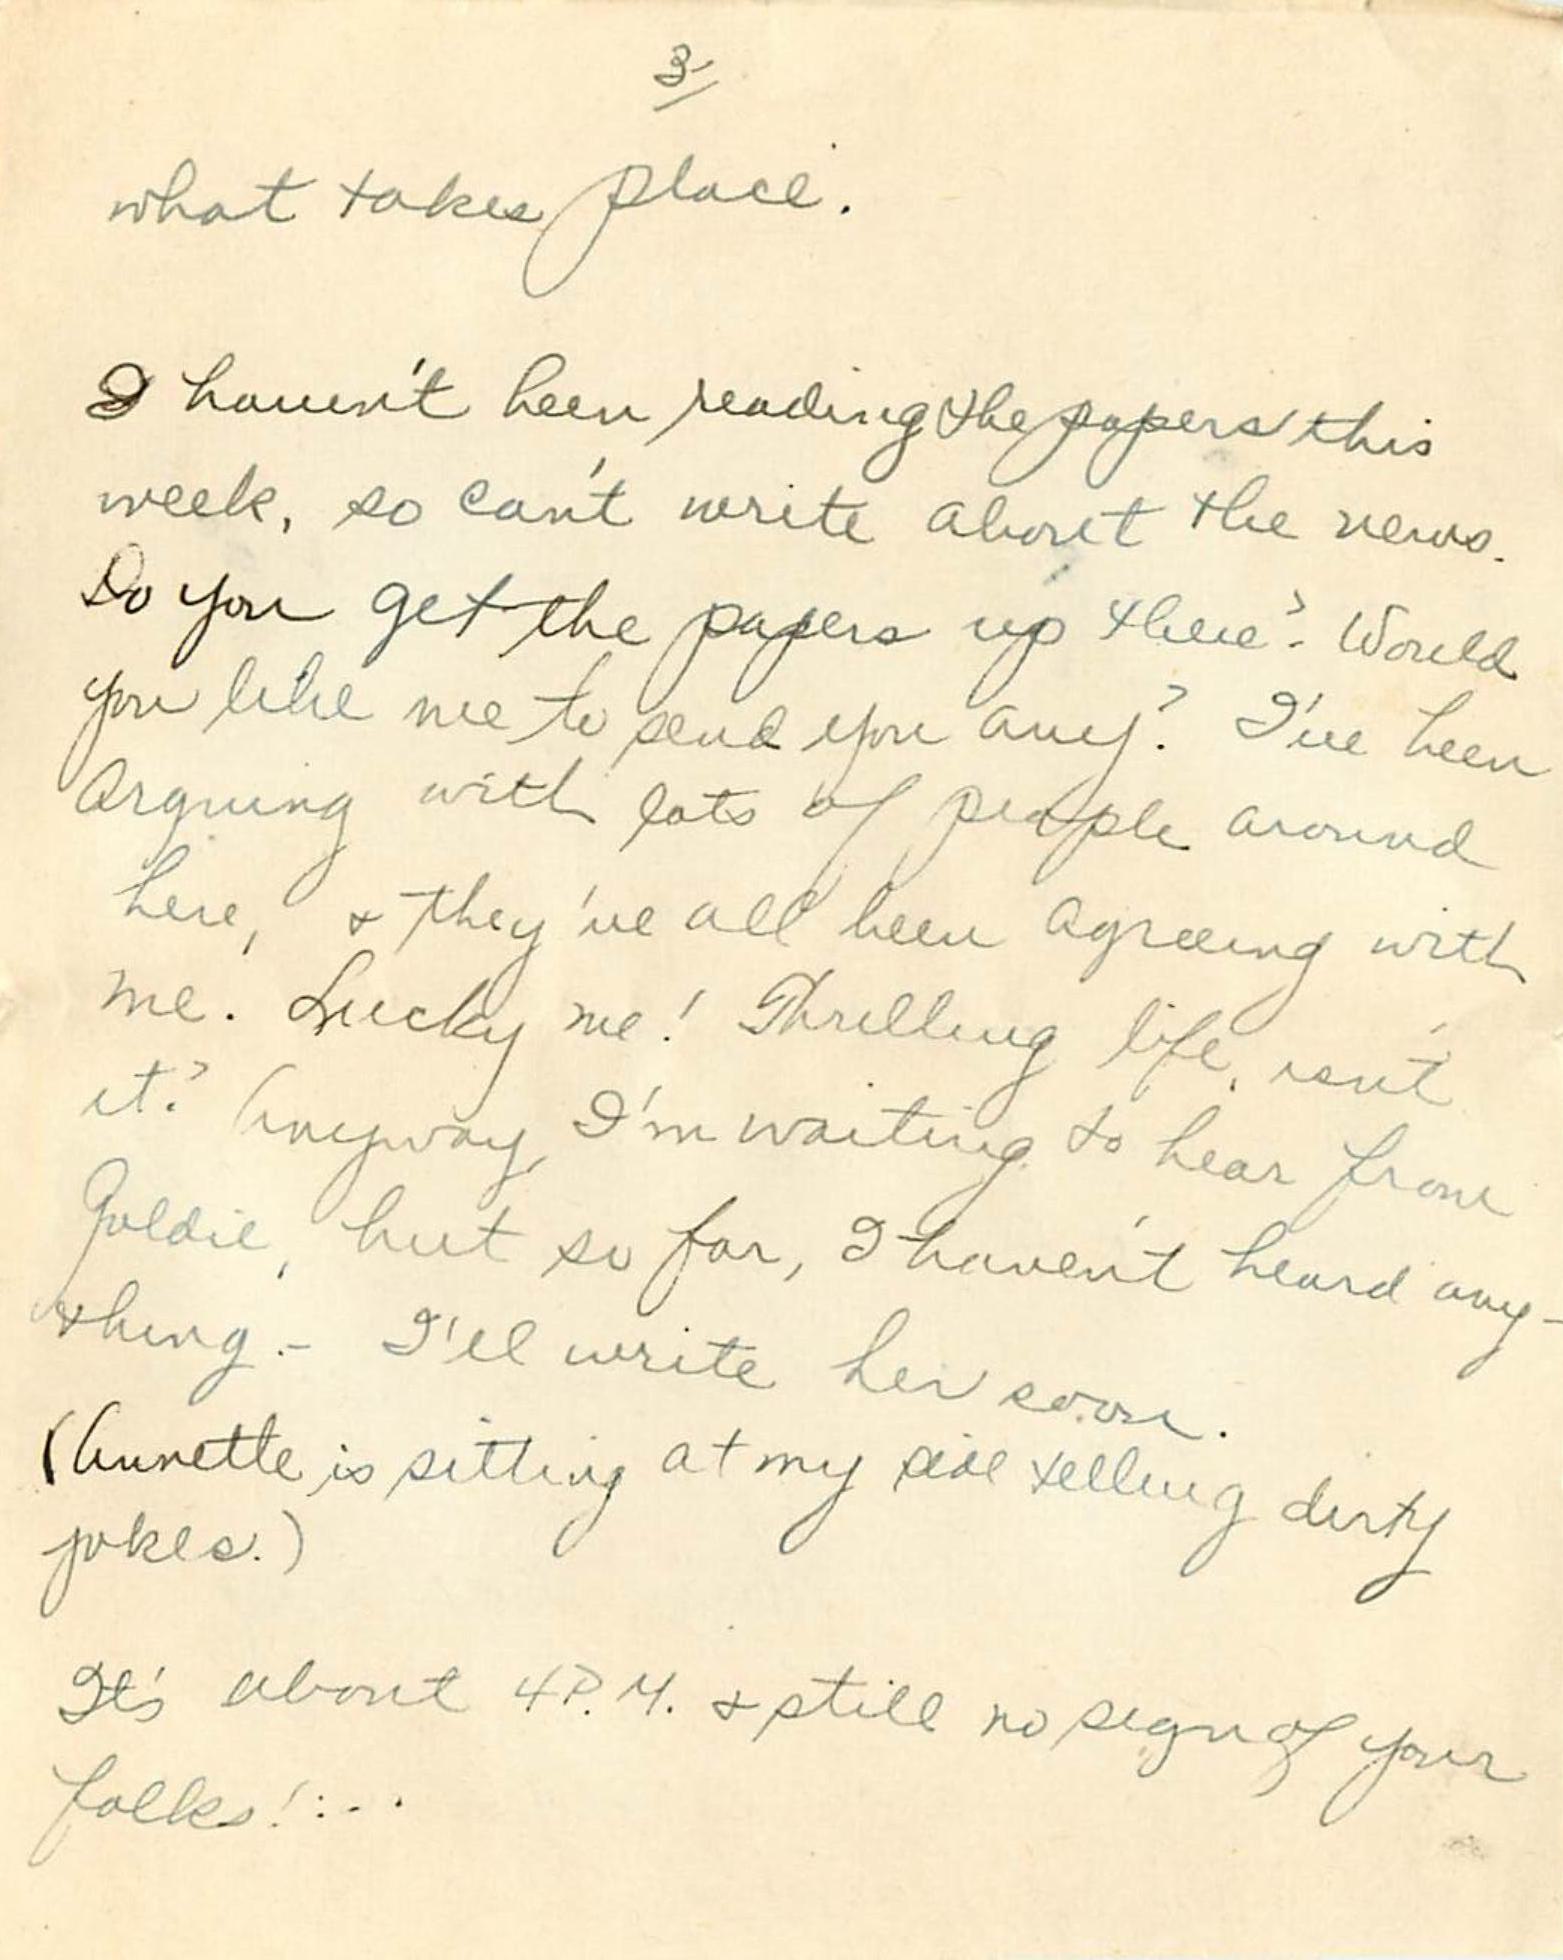 3/
what takes place.
I haven't been reading the papers this
week, so can't write about the news.
Do you get the papers up there? Would
you like me to send you any? I've been
arguing with lots of people around
here, & they've all been agreeing with
me. Lucky me! Thrilling life, isn't
it? Anyway, I'm waiting to hear from
Goldie, but so far, I haven't heard any-
thing.- I'll write her soon.
(Annette is sitting at my side telling dirty
jokes.)
It's about 4 P.M. & still no sign of your
folks!...